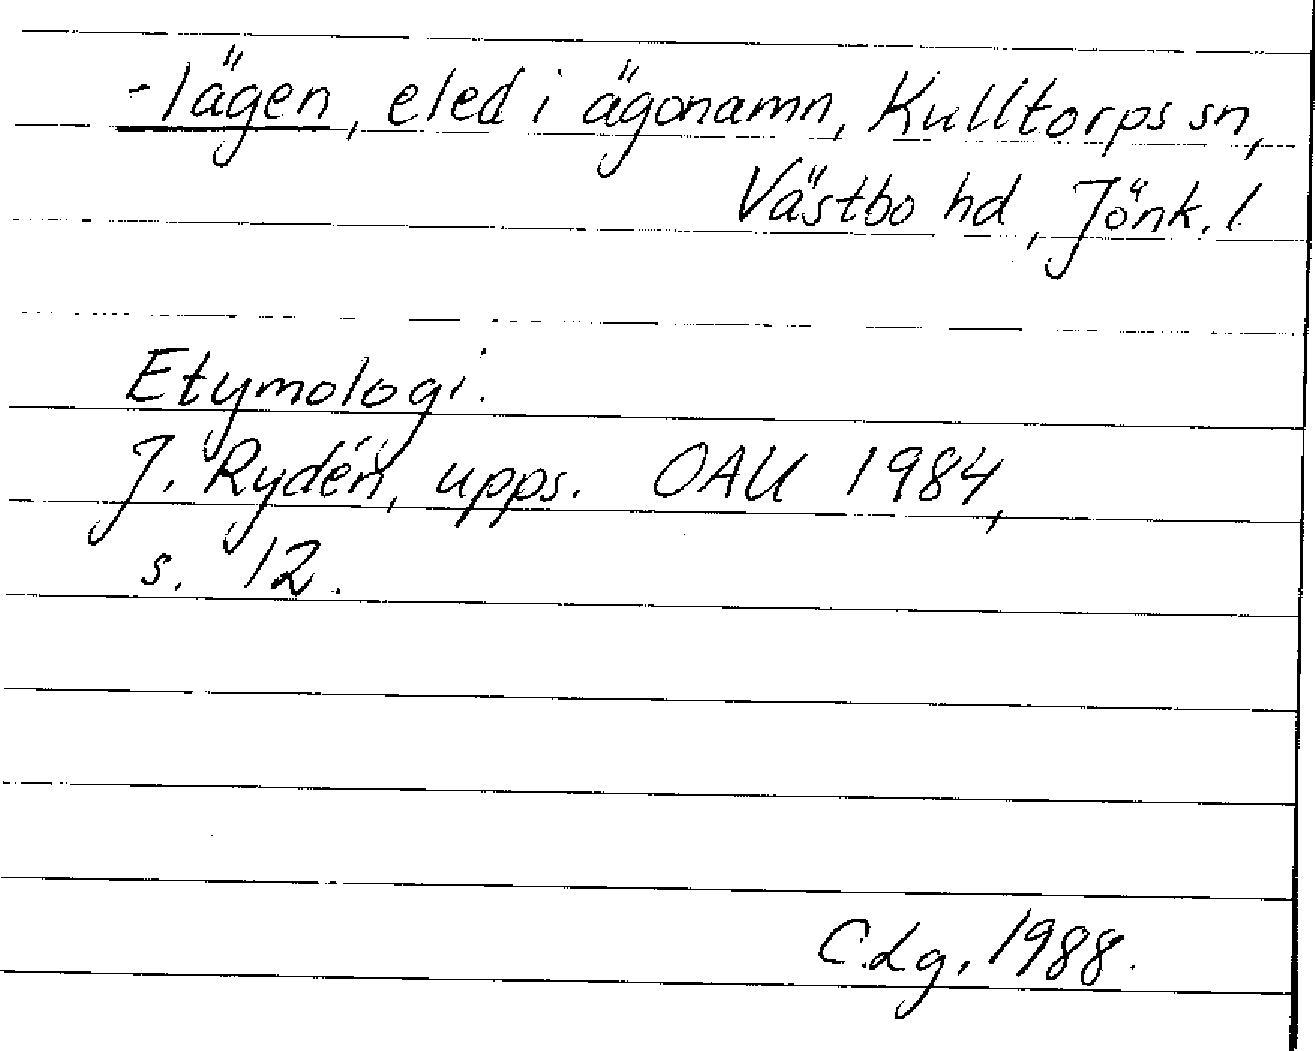 -lägen, eled i ägonamn, Kulltorps sn,
Västbo hd, Jönk. l
Etymologi.
J. Rydén, upps. OAU 1984,
s. 12.
C.Lg. 1988.